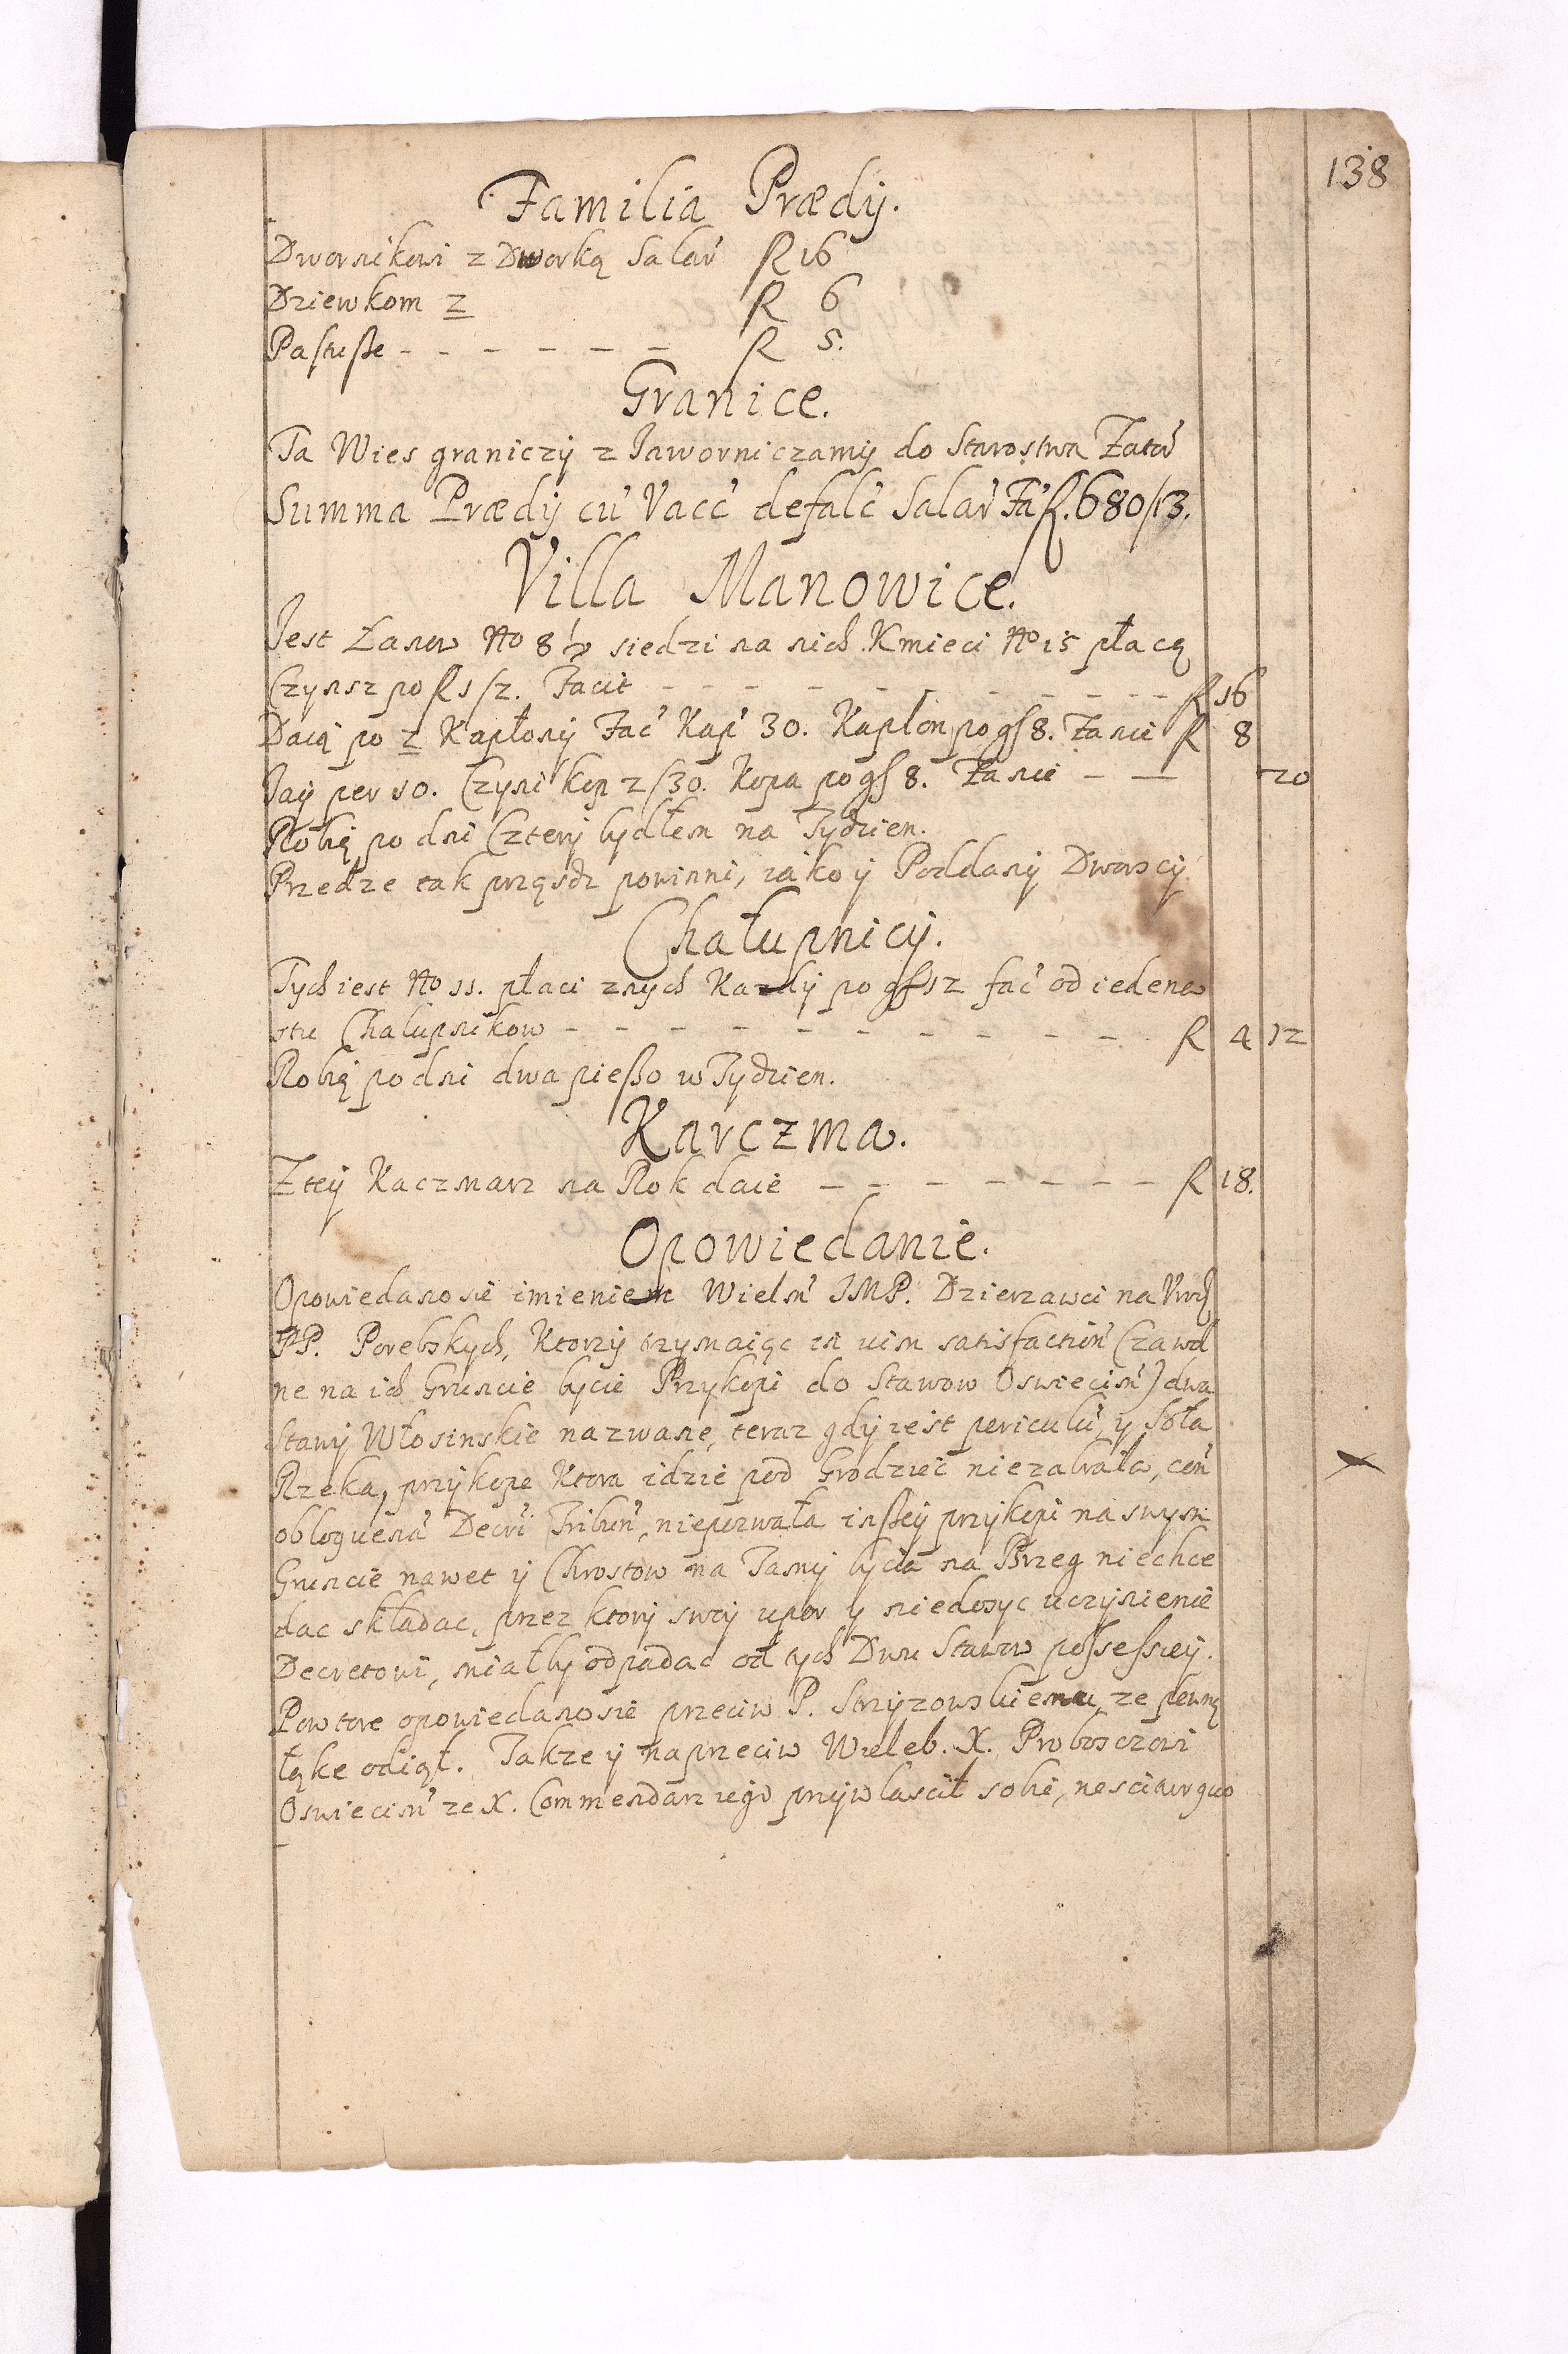 138
Familia Prædij.
Dwornikowi z Dworką Salar R 16
Dziewkom 2 R 6
Pastuße - - - - - - R 5.
Granice.
Ta Wies graniczy z Jaworniczamy do Starostwa Zator
Summa Prædij cu Vacc defalc Salar Fa R. 680/13.
Villa Manowice.
Jest Łanow No 8 ½ siedzi na nich Kmieci No 15 płacą
Czynsz po R 1/2. Facit - - - - - - - - - R 16
Daią po 2 Kapłony Fac Kap 30. Kapłon po gs 8. Za nie R 8
Jay per 10. Czyni kop 2/30. Kopa po gs 8. Za nie - - 20
Robią po dni Cztery bydłem na Tydzien.
Przedze tak prząśdz powinni, iako y Poddany Dworscy
Chałupnicy.
Tych iest No 11. płaci znych Kazdy po gs 12 fac od iedena
stu Chalupnikow - - - - - - - - - - R 4 12
Robią po dni dwa pießo w Tydzien.
Karczma.
Z tey Kaczmarz na Rok daie - - - - - - - R 18.
Opowiedanie.
Opowiedano sie imieniem Wielm JMP. Dzierzawci na Urodz
PP. Porebskych, Ktorzy trzymaiąc in vim satisfaction (za wol
ne na ich Gruncie bycie Przykopi do Stawow Oswiecim) dwa
Stawy Włosinskie nazwane, teraz gdy iest periculu, y Soła
Rzeka, przykope Ktora idzie pod Grodziec niezabrała, con
obloquena Decri Tribun, niepozwala inßey przykopi na swym
Gruncie nawet y Chrostow na Tamy bycia na Brzeg niechce
dac składac, przez ktory swoy upor y niedosyc uczynienie
Decretowi, miałby odpadac od tych Dwu Stawow possessiey.
Powtore opowiedano sie przeciw P. Strzyzowskiemu, ze pewną
łąke odiął. Takze y naprzeciw Wieleb. X. Proboszczowi
Oswiecim ze X. Commendarz iego przywłascił sobie, nesciatur quo